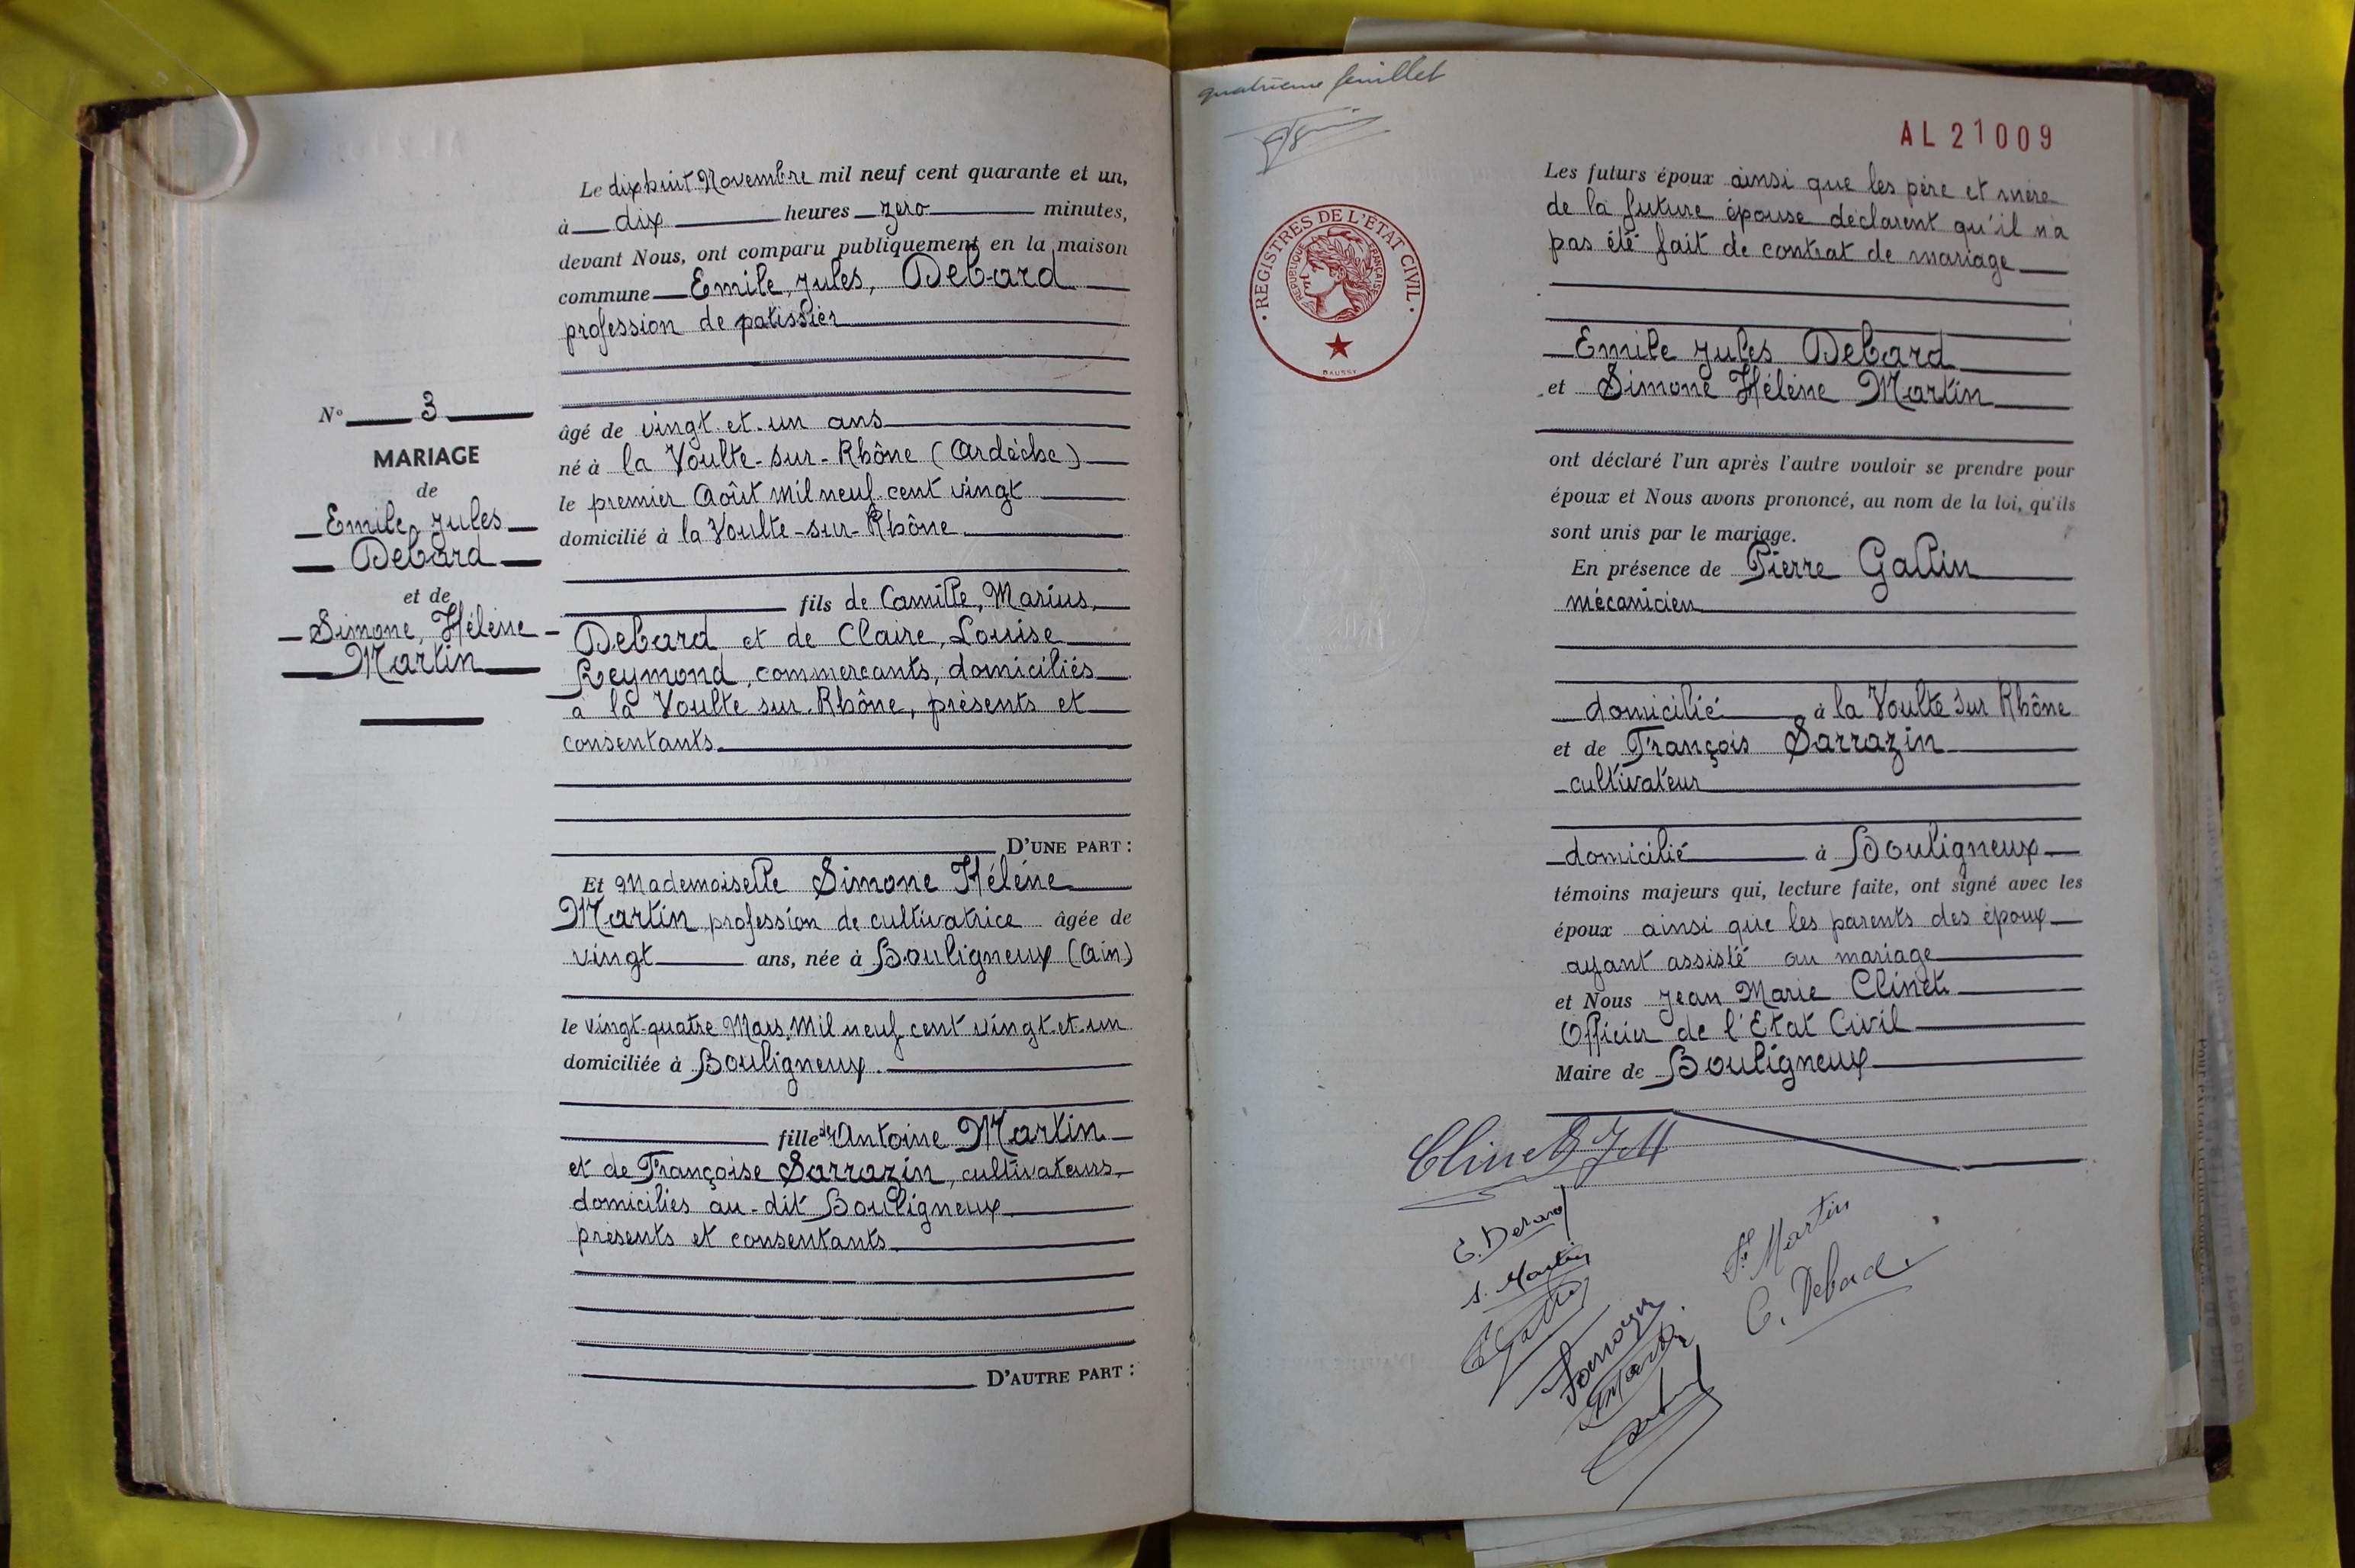 Le dix huit Novembre mil neuf cent quarante et un,
à dix heures zero minutes,
devant Nous, ont comparu publiquement en la maison
commune Emile, Jules, Debard
profession de patissier
âgé de vingt-et-un ans
né à la Voulte-sur-Rhône (Ardèche)
le premier Août mil neuf cent vingt
domicilié à la Voulte-sur-Rhône
fils de Camille, Marius,
Debard et de Claire, Louise
Reymond, commercants, domiciliés
à la Voulte sur-Rhône, présents et
consentants
D'UNE PART :
Et Mademoiselle Simone Hélène
Martin profession de cultivatrice âgée de
vingt ans, née à Bouligneux (Ain)
le vingt-quatre Mars mil neuf cent vingt-et-un
domiciliée à Bouligneux.
fille d'Antoine Martin
et de Françoise Sarrazin, cultivateurs,
domiciliés au-dit Bouligneux
présents et consentants
D'AUTRE PART :
N° 3
MARIAGE
de
Emile, Jules
Debard
et de
Simone, Hélène
Martin
quatrième feuillet
AL 21009
REGISTRES DE L'ÉTAT CIVIL
RÉPUBLIQUE FRANÇAISE
DAUSSY
Les futurs époux ainsi que les père et mère
de la future épouse déclarent qu'il n'a
pas été fait de contrat de mariage
Emile Jules Debard
et Simone Hélène Martin
ont déclaré l'un après l'autre vouloir se prendre pour
époux et Nous avons prononcé, au nom de la loi, qu'ils
sont unis par le mariage.
En présence de Pierre Gallin
mécanicien
domicilié à la Voulte sur Rhône
et de François Sarrazin
cultivateur
domicilié à Bouligneux
témoins majeurs qui, lecture faite, ont signé avec les
époux ainsi que les parents des époux
ayant assisté au mariage
et Nous Jean Marie Clinet
Officier de l'Etat Civil
Maire de Bouligneux
Clinet J M
E. Debard
S. Martin
Sarrazin
Martin
F. Martin
C. Debard